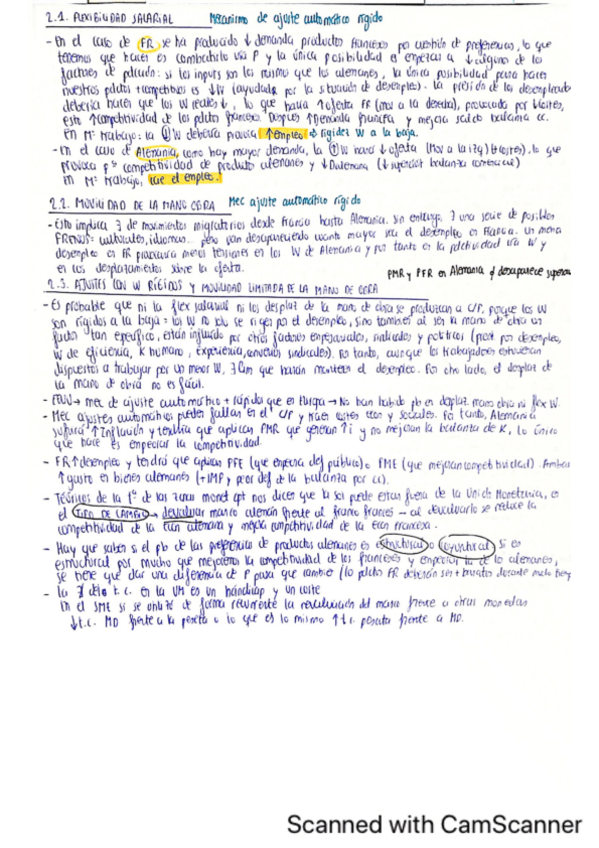 2.1. FLEXIBILIDAD SALARIAL Mecanismo de ajuste automático rígido
- En el caso de FR se ha producido ↓ demanda productos franceses por cambio de preferencias, lo que
tenemos que hacer es combatirlo vía P y la única posibilidad es empezar a ↓ alguno de los
factores de pdcción: si los inputs son los mismos que los alemanes, la única posibilidad para hacer
nuestros pdtos + competitivos es ↓W (ayudada por la situación de desempleo). La presión de los desempleados
debería hacer que los W reales ↓, lo que haría ↑oferta FR (mov a la derecha), provocada por ↓costes,
esto ↑competitividad de los pdtos franceses. Después ↑demanda francesa y mejora saldo balanza cc.
en Mº trabajo: la ↓W debería provocar ↑empleo ⇒ rigidez W a la baja.
- En el caso de Alemania, como hay mayor demanda, la ↑W hará ↓oferta (Mov a la izq) (↑costes), lo que
provoca pª competitividad de productos alemanes y ↓Dalemana (↓superávit balanza comercial)
en Mº Trabajo, cae el empleo.
2.2. MOVILIDAD DE LA MANO OBRA Mec ajuste automático rígido
- Esto implica ∃ de movimientos migratorios desde Francia hasta Alemania. Sin embargo, ∃ una serie de posibles
FRENOS= culturales, idiomas... pero van desapareciendo cuanto mayor sea el desempleo en Francia. Un menor
desempleo en FR provocará menos tensiones en los W de Alemania y por tanto en la pdctividad vía W y
en los desplazamientos sobre la oferta. PMR y PFR en Alemania y desaparece superávit
2.3. AJUSTES CON W RÍGIDOS Y MOVILIDAD LIMITADA DE LA MANO DE OBRA
- Es probable que ni la flex salarial ni los desplaz de la mano de obra se produzcan a C/P, porque los W
son rígidos a la baja = los W no solo se rigen por el desempleo, sino también al ser la mano de obra un
factor tan específico, están influidos por otros factores empresariales, sindicales y políticos (prest por desempleo,
W de eficiencia, K humano, experiencia, convenios sindicales). Por tanto, aunque los trabajadores estuvieran
dispuestos a trabajar por un menor W, ∃ que harían mantener el desempleo. Por otro lado, el desplaz de
la mano de obra no es fácil.
- EEUU → mec de ajuste automático + rápido que en Europa → No han habido pb en desplaz mano obra ni flex W.
- Mec ajustes automáticos pueden fallar en el C/P y traer costes econ y sociales. Por tanto, Alemania
sufrirá ↑Inflación y tendría que aplicar PMR que generan ↑i y no mejoran la balanza de K, lo único
que hace es empeorar la competitividad.
- FR ↑desempleo y tendrá que aplicar PFE (que empeora def público) o PME (que mejoran competitividad). Ambas
↑gasto en bienes alemanes (+IMP y peor def de la balanza por cc).
- Teóricos de la 1ª de las zonas monet opt nos dicen que la sol puede estar fuera de la Unión Monetaria, es
el TIPO DE CAMBIO → devaluar marco alemán frente al franco francés – al devaluarlo se reduce la
competitividad de la Econ alemana y mejora competitividad de la Econ francesa.
- Hay que saber si el pb de las preferencias de productos alemanes es estructural o coyuntural. Si es
estructural por mucho que mejoremos la competitividad de los franceses y empeore la de los alemanes,
se tiene que dar una diferencia de P para que cambie (lo pdcto FR deberán ser + baratos durante mucho tiempo
- la ∄ del t.c. en la UM es un hándicap y un coste
En el SME si se utilizó de forma recurrente la revaluación del marco frente a otras monedas
↓t.c. MD frente a la peseta o lo que es lo mismo ↑t.c. peseta frente a MD.
Scanned with CamScanner